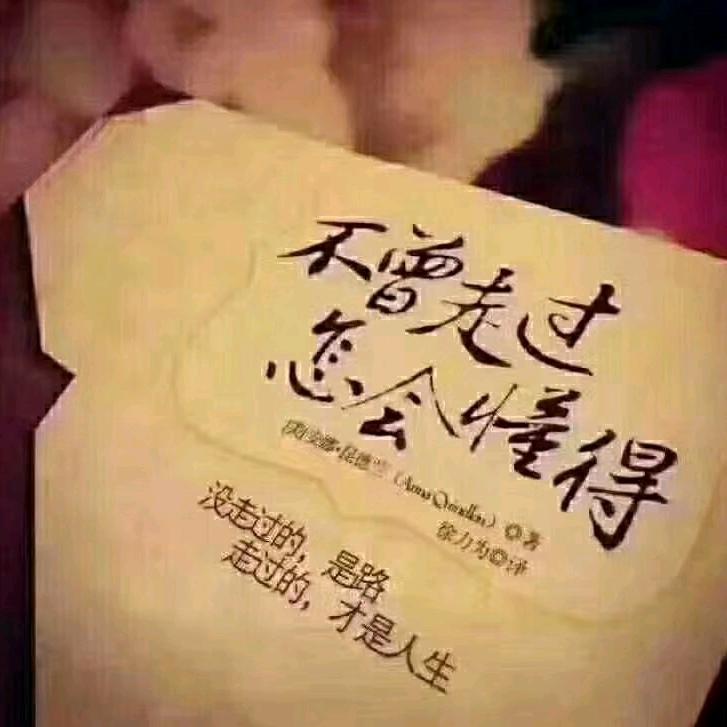 不曾走过
怎会懂得
[美]安娜·昆德兰（Anna Quindlen）◎著
徐力为◎译
没走过的，是路
走过的，才是人生